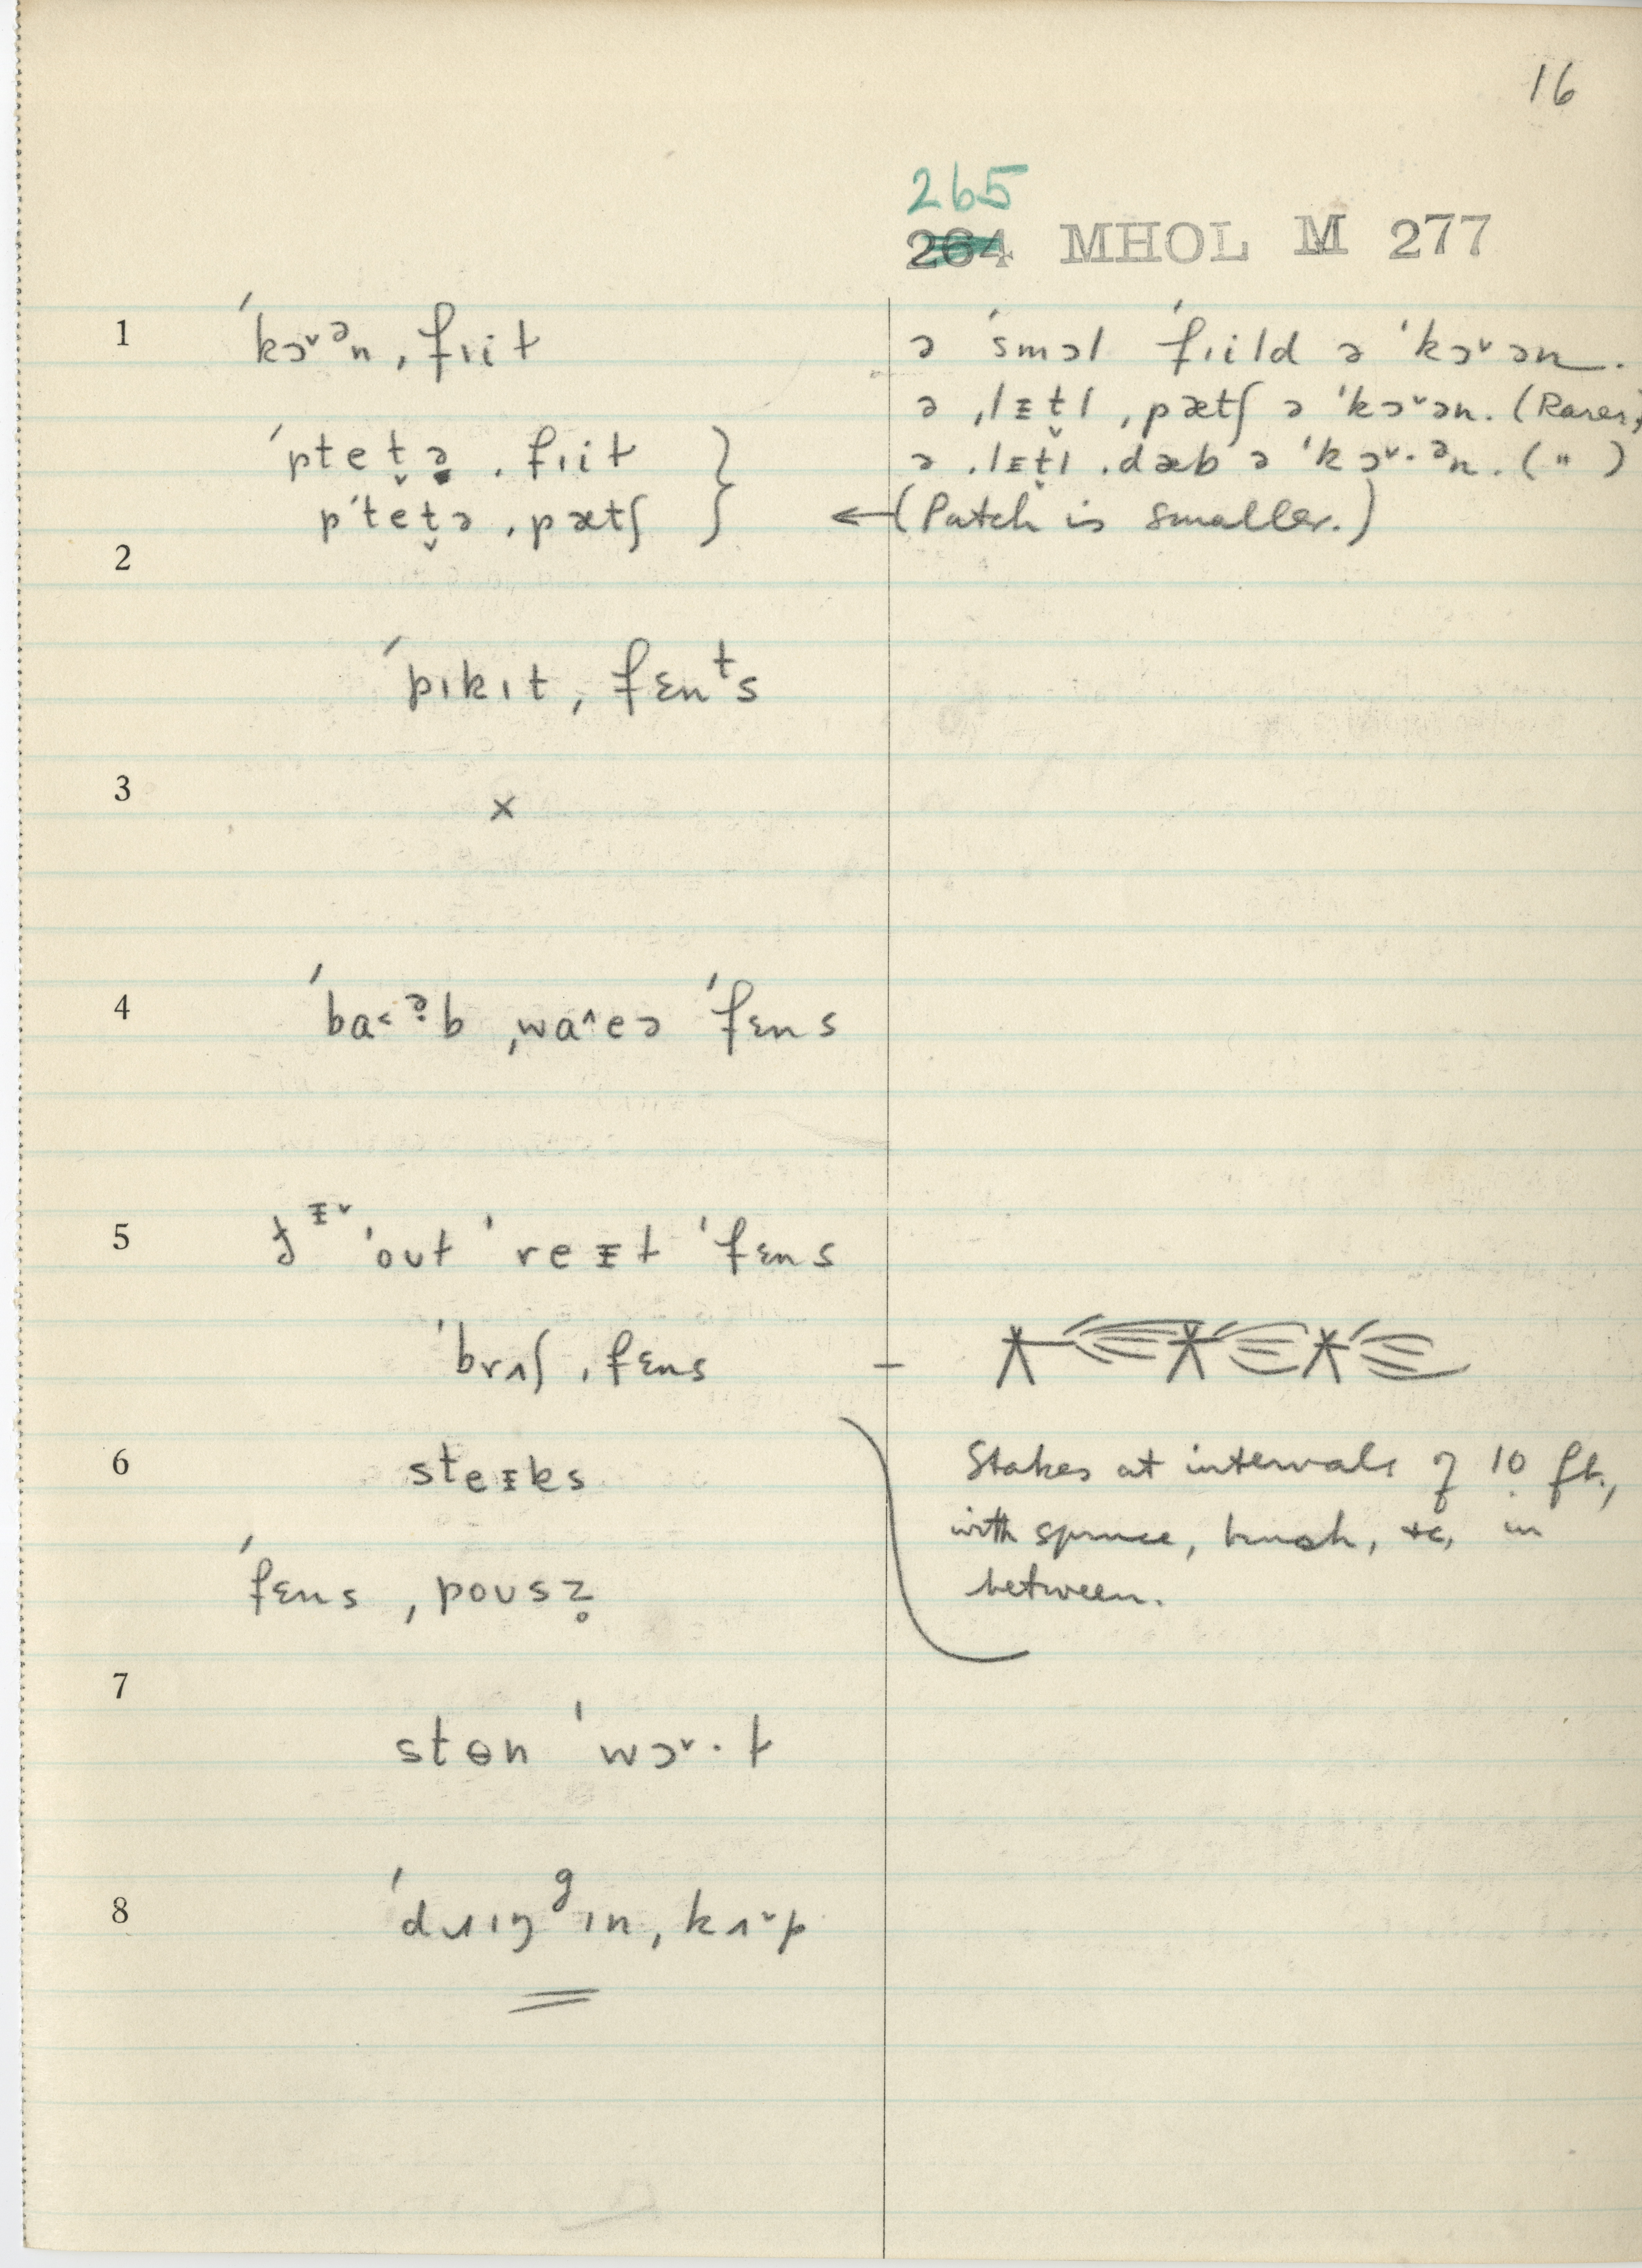 16
265
264 MHOL M 277
1 ˈkɔ˅ᵊn ˌfɪiɫ
ə ˈsmɔl ˈfɪild ə ˈkɔ˅ən.
ə ˌlᵻt̬l ˌpætʃ ə ˈkɔ˅ən. (Rarer)
ˈptet̬ə ˌfɪiɫ
ə ˌlᵻt̬l ˌdæb ə ˈkɔ˅·ᵊn. (")
pˈtet̬ə ˌpætʃ
←(Patch is smaller.)
2
ˈpɪkɪt ˌfɛnᵗs
3 ×
4 ˈba˂ᵊ̣b ˌwa^eə ˈfɛns
5 ˈout ˈreᵻɫ ˈfɛns
ˈbrʌʃ ˌfɛns –
6 steᵻks
Stakes at intervals of 10 ft.,
with spruce, brush, etc, in
between.
ˈfɛns ˌpousz̥
7
stɵn ˈwɔ˅·ɫ
8 ˈdʌɪŋᵍɪn ˌkʌ˅p